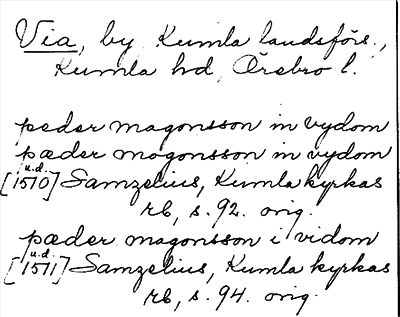 Via, by Kumla landsförs.,
Kumla hd, Örebro l.
peder magonsson in vydom
pæder magonsson in vydom
u.d.
[1510] Samzelius, Kumla kyrkas
rb, s. 92. orig.
pæder magonsson i vidom
u.d.
[1511] Samzelius, Kumla kyrkas
rb, s. 94. orig.